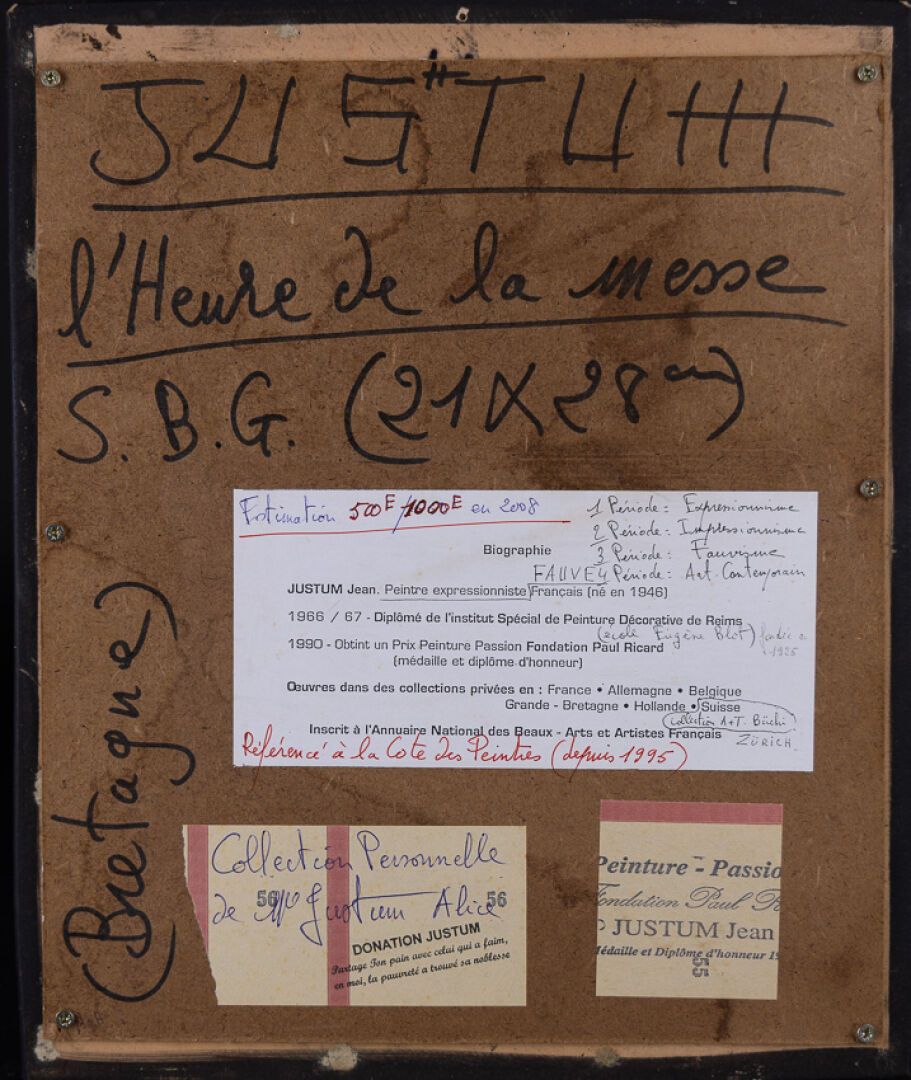 JUSTUM
l'Heure de la messe
S.B.G. (21 X 28 cm)
(Bretagne)
Estimation 500E/1000E en 2008
1 Période: Expressionnisme
2 Période: Impressionnisme
3 Période: Fauvisme
FAUVE 4 Période: Art. Contemporain
Biographie
JUSTUM Jean. Peintre expressionniste Français (né en 1946)
1966 / 67 - Diplômé de l'institut Spécial de Peinture Décorative de Reims
(école Eugène Blot) fondée en 1925
1990 - Obtint un Prix Peinture Passion Fondation Paul Ricard
(médaille et diplôme d'honneur)
Œuvres dans des collections privées en : France • Allemagne • Belgique
Grande - Bretagne • Hollande • Suisse
(collection A+T. Büchi)
ZÜRICH
Inscrit à l'Annuaire National des Beaux - Arts et Artistes Français
Référencé à la Cote des Peintres (depuis 1995)
Collection Personnelle
de Mme Justum Alice
56 56
DONATION JUSTUM
Partage Ton pain avec celui qui a faim,
en moi, la pauvreté a trouvé sa noblesse
Peinture - Passio
Fondation Paul R
JUSTUM Jean
Médaille et Diplôme d'honneur 1
55